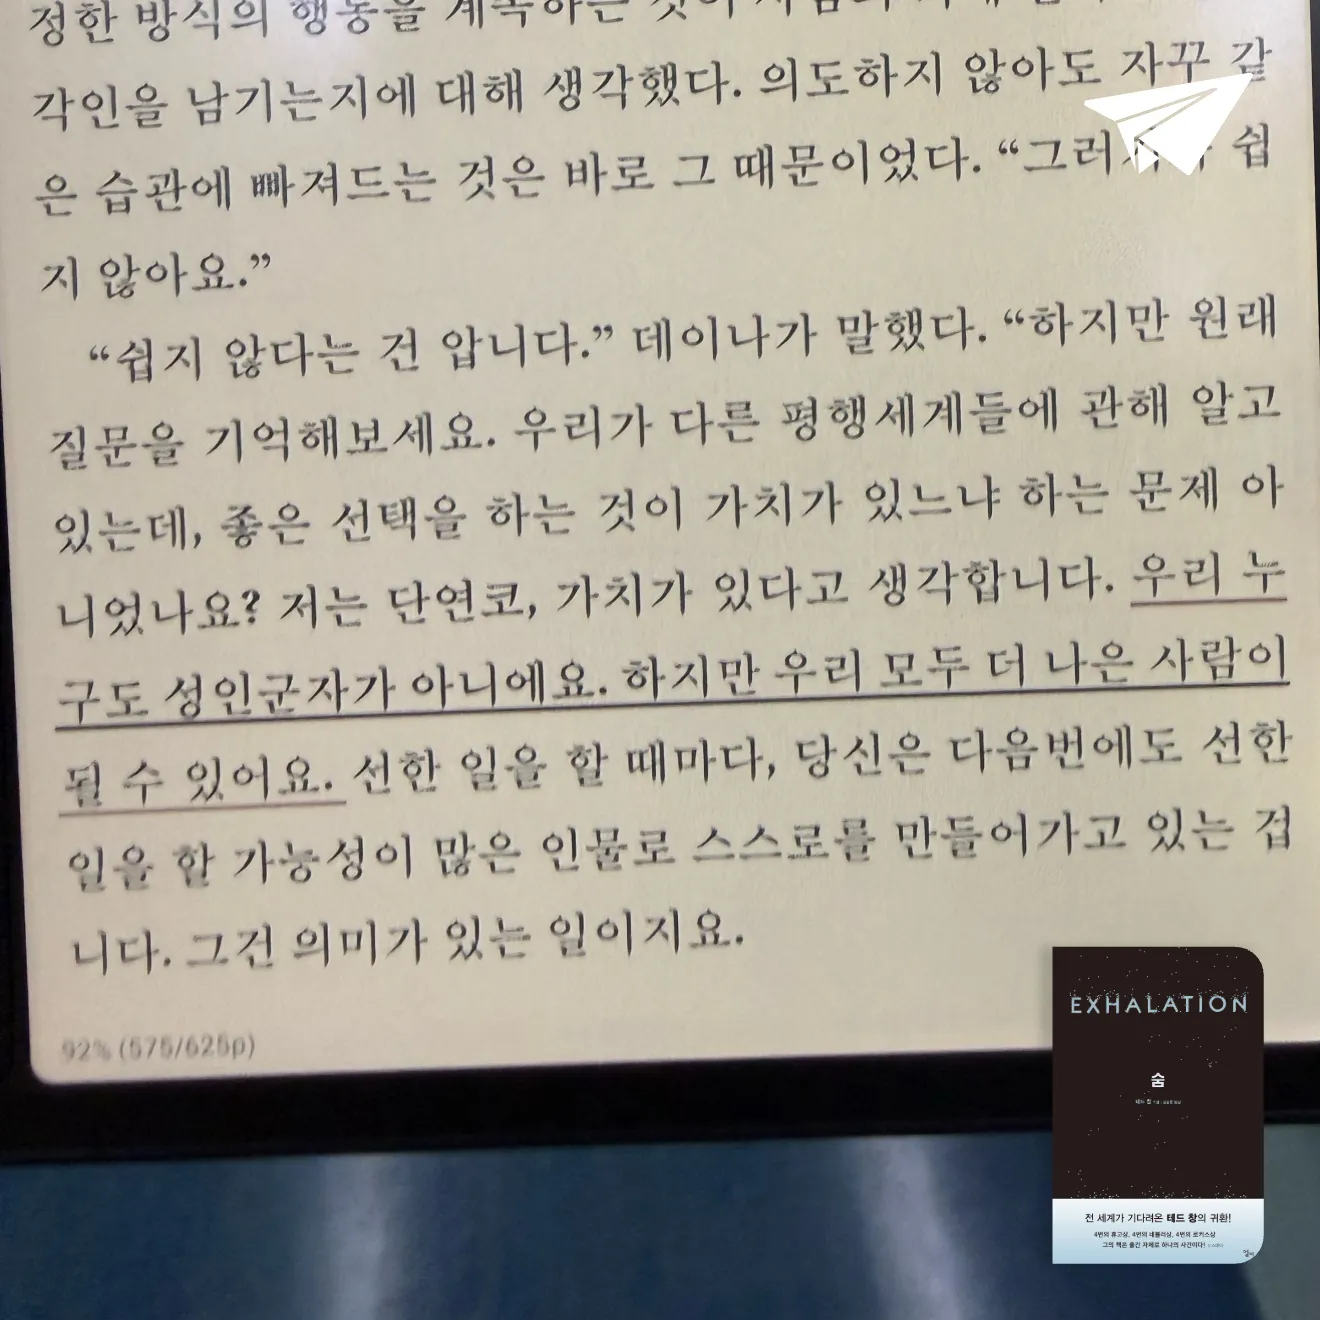 정한 방식의 행동을 계속하는 것이
각인을 남기는지에 대해 생각했다. 의도하지 않아도 자꾸 같
은 습관에 빠져드는 것은 바로 그 때문이었다. “그러 쉽
지 않아요.”
“쉽지 않다는 건 압니다.” 데이나가 말했다. “하지만 원래
질문을 기억해보세요. 우리가 다른 평행세계들에 관해 알고
있는데, 좋은 선택을 하는 것이 가치가 있느냐 하는 문제 아
니었나요? 저는 단연코, 가치가 있다고 생각합니다. 우리 누
구도 성인군자가 아니에요. 하지만 우리 모두 더 나은 사람이
될 수 있어요. 선한 일을 할 때마다, 당신은 다음번에도 선한
일을 할 가능성이 많은 인물로 스스로를 만들어가고 있는 겁
니다. 그건 의미가 있는 일이지요.
92% (575/625p)
EXHALATION
숨
테드 창
전 세계가 기다려온 테드 창의 귀환!
4번의 휴고상, 4번의 네뷸러상, 4번의 로커스상
그의 책은 출간 자체로 하나의 사건이다!